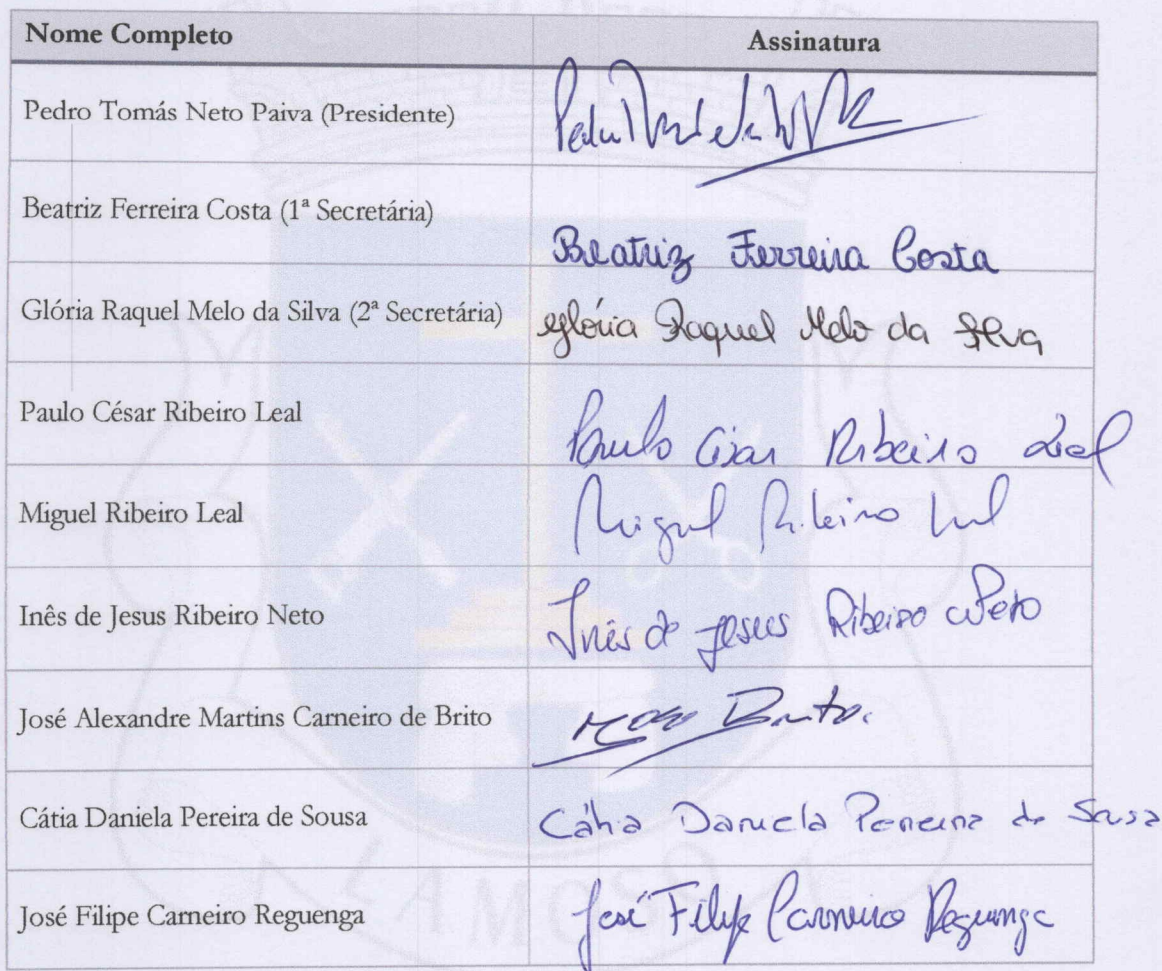 Nome Completo Assinatura
Pedro Tomás Neto Paiva (Presidente)
Beatriz Ferreira Costa (1ª Secretária) Beatriz Ferreira Costa
Glória Raquel Melo da Silva (2ª Secretária) Glória Raquel Melo da Silva
Paulo César Ribeiro Leal Paulo César Ribeiro Leal
Miguel Ribeiro Leal Miguel Ribeiro Leal
Inês de Jesus Ribeiro Neto Inês de Jesus Ribeiro Neto
José Alexandre Martins Carneiro de Brito Brito
Cátia Daniela Pereira de Sousa Cátia Daniela Pereira de Sousa
José Filipe Carneiro Reguenga José Filipe Carneiro Reguenga
LAMOSO